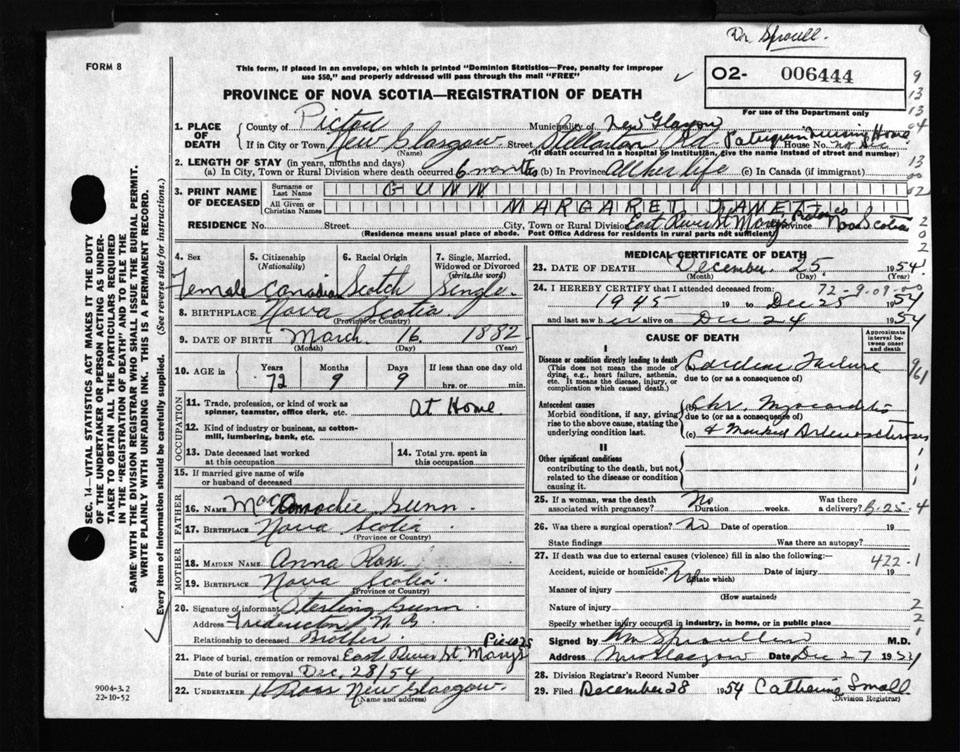 Dr Sproull.
FORM 8
This form, if placed in an envelope, on which is printed "Dominion Statistics—Free, penalty for improper
use $50," and properly addressed will pass through the mail "FREE"
02- 006444
For use of the Department only
PROVINCE OF NOVA SCOTIA—REGISTRATION OF DEATH
1. PLACE OF DEATH County of Pictou Municipality of New Glasgow
If in City or Town New Glasgow (Name) Street Stellarton Rd House No. Nursing Home
(If death occurred in a hospital or institution, give the name instead of street and number)
2. LENGTH OF STAY (in years, months and days)
(a) In City, Town or Rural Division where death occurred 6 months (b) In Province All her life (c) In Canada (if immigrant)
3. PRINT NAME OF DECEASED Surname or Last Name GUNN
All Given or Christian Names MARGARET JANET
RESIDENCE No. Street City, Town or Rural Division East River St Marys Pictou Co Province Nova Scotia
(Residence means usual place of abode. Post Office Address for residents in rural parts not sufficient)
4. Sex Female
5. Citizenship (Nationality) Canadian
6. Racial Origin Scotch
7. Single, Married, Widowed or Divorced (Write the word) Single.
8. BIRTHPLACE Nova Scotia (Province or Country)
9. DATE OF BIRTH March 16 1882
(Month) (Day) (Year)
10. AGE in Years Months Days If less than one day old
72 9 9 hrs. or min.
OCCUPATION
11. Trade, profession, or kind of work as spinner, teamster, office clerk, etc. At Home
12. Kind of industry or business, as cotton-mill, lumbering, bank, etc.
13. Date deceased last worked at this occupation
14. Total yrs. spent in this occupation
15. If married give name of wife or husband of deceased
FATHER
16. NAME Gunn
17. BIRTHPLACE Nova Scotia (Province or Country)
MOTHER
18. MAIDEN NAME Anna Ross
19. BIRTHPLACE Nova Scotia (Province or Country)
20. Signature of informant Sterling Gunn
Address Fredericton N.B.
Relationship to deceased Brother
21. Place of burial, cremation or removal East River St. Marys Pictou Co
Date of burial or removal Dec. 28/54
22. UNDERTAKER Ross New Glasgow.
(Name and address)
MEDICAL CERTIFICATE OF DEATH
23. DATE OF DEATH December 25 1954
(Month) (Day) (Year)
72-9-09-00
24. I HEREBY CERTIFY that I attended deceased from:
1945 19 to Dec 25 1954
and last saw her alive on Dec 24 1954
CAUSE OF DEATH
Approximate interval between onset and death
I
Disease or condition directly leading to death
(This does not mean the mode of dying, e.g., heart failure, asthenia, etc. It means the disease, injury, or complication which caused death.)
(a) Cardiac Failure
due to (or as a consequence of)
Antecedent causes
Morbid conditions, if any, giving rise to the above cause, stating the underlying condition last.
(b) Chr. Myocarditis
due to (or as a consequence of)
(c) & Marked Arteriosclerosis
II
Other significant conditions
contributing to the death, but not related to the disease or condition causing it.
25. If a woman, was the death associated with pregnancy? No Duration weeks. Was there a delivery?
26. Was there a surgical operation? No Date of operation 19
State findings Was there an autopsy?
27. If death was due to external causes (violence) fill in also the following:— 422-1
Accident, suicide or homicide? No (State which) Date of injury 19
Manner of injury (How sustained)
Nature of injury
Specify whether injury occurred in industry, in home, or in public place
Signed by M.D.
Address New Glasgow Date Dec 27 1954
28. Division Registrar's Record Number
29. Filed December 28 1954 Catharine Small
(Division Registrar)
9004-3.2
22-10-52
SEC. 14—VITAL STATISTICS ACT MAKES IT THE DUTY
OF THE UNDERTAKER OR PERSON ACTING AS UNDERTAKER TO OBTAIN ALL THE PARTICULARS REQUIRED
IN THE "REGISTRATION OF DEATH" AND TO FILE THE
SAME WITH THE DIVISION REGISTRAR WHO SHALL ISSUE THE BURIAL PERMIT.
WRITE PLAINLY WITH UNFADING INK. THIS IS A PERMANENT RECORD.
Every item of information should be carefully supplied. (See reverse side for instructions.)